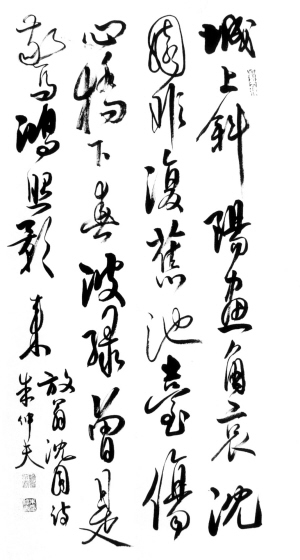 城上斜陽畫角哀沈
園非復舊池臺傷
心橋下春波綠曾是
驚鴻照影來
放翁沈園詩
朱仲夫